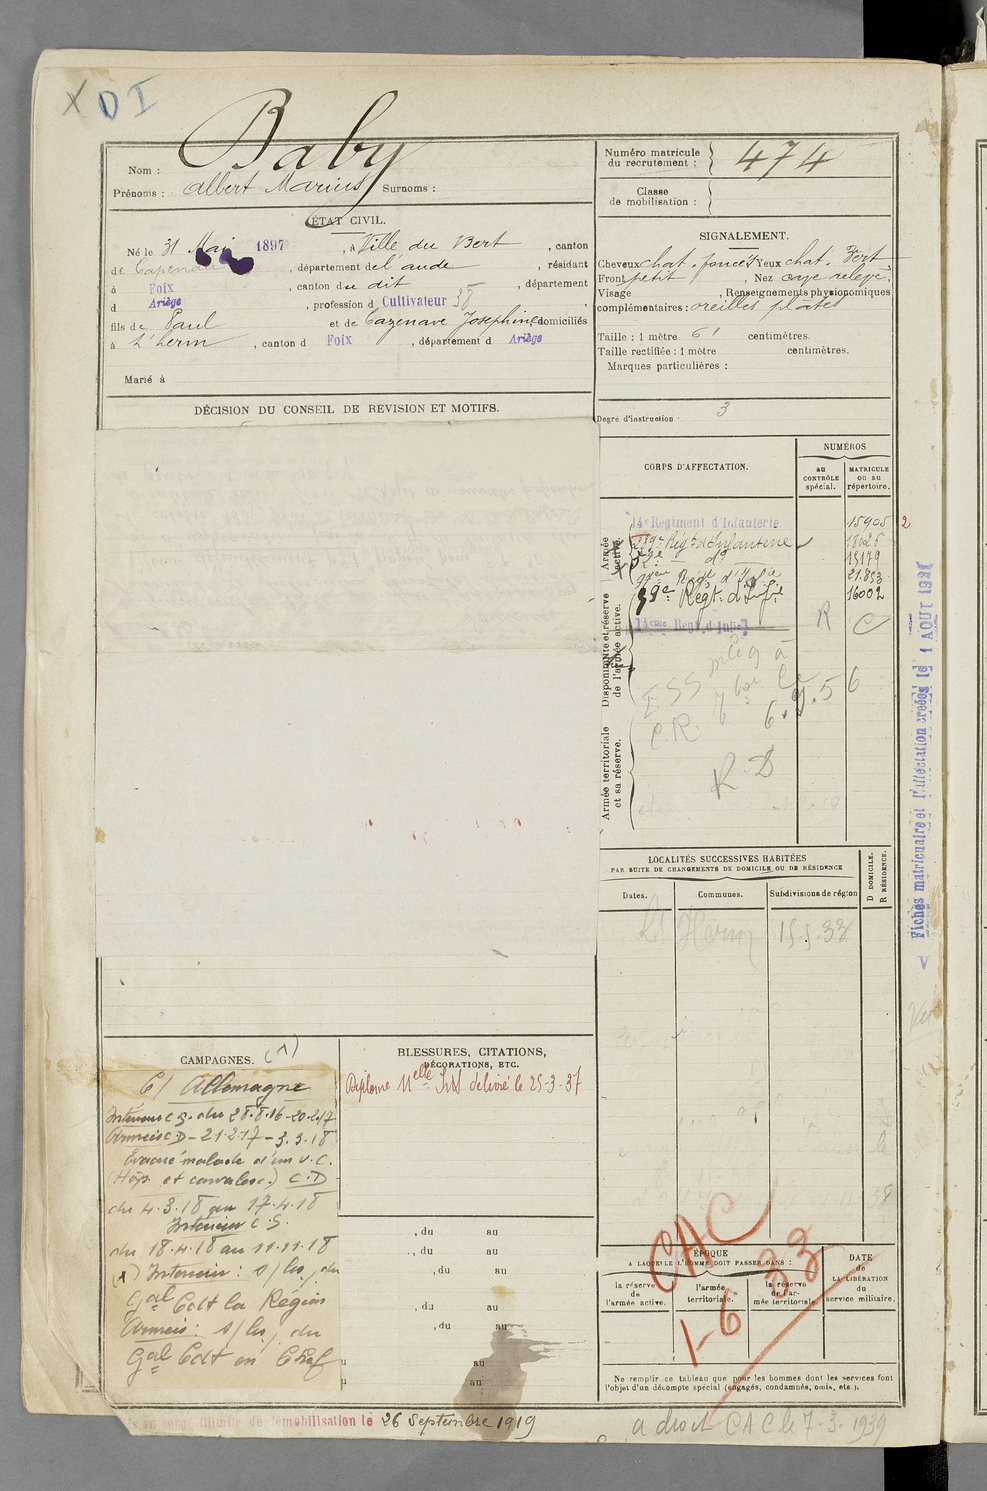 X D I
Baby
Nom :
Prénoms : Albert Marius Surnoms :
Numéro matricule
du recrutement : 474
Classe
de mobilisation :
ÉTAT CIVIL.
Né le 31 Mai 1897, à Ville du Bert, canton
de Capendu, département de l'aude, résidant
à Foix, canton du dit, département
d Ariège, profession d Cultivateur 38
fils de Paul et de Cazenave Joséphine, domiciliés
à L'herm, canton d Foix, département d Ariège
Marié à
SIGNALEMENT.
Cheveux chat. foncés Yeux chat. Vert
Front petit, Nez cave relevé,
Visage , Renseignements physionomiques
complémentaires : oreilles plates
Taille : 1 mètre 61 centimètres.
Taille rectifiée : 1 mètre centimètres.
Marques particulières :
Degré d'instruction · 3
DÉCISION DU CONSEIL DE REVISION ET MOTIFS.
CORPS D'AFFECTATION.
NUMÉROS
au
CONTRÔLE
spécial.
MATRICULE
ou au
répertoire.
Armée
active.
14e Régiment d'Infanterie 15905 2
Régt d'Infanterie
do 15179
Régt d'Infie 21.853
Régt. d'Infie 16002
Disponibilité et réserve
de l'armée active.
14eme Regt d'Infie R C
6.9.56
C.R.
R.D
Armée territoriale
et sa réserve.
Fiches matriculaire et d'affectation créées le 1 AOUT 19
V
LOCALITÉS SUCCESSIVES HABITÉES
PAR SUITE DE CHANGEMENTS DE DOMICILE OU DE RÉSIDENCE
Dates. Communes. Subdivisions de région
D DOMICILE.
R RÉSIDENCE.
L'Herm 15.5.33
CAMPAGNES. (1)
C/ Allemagne
Intérieur C S. du 28.8.16-20.2.17
Armées C D - 21.2.17 - 3.3.18
Évacué malade d'un U.C.
(Hôp. et convalesc.) C.D
du 4.3.18 au 17.4.18
Intérieur C.S.
du 18.4.18 au 11.11.18
(1) Intérieur : s/les/ du
Gal Cdt la Région
Armées : s/les/ du
Gal Cdt en Chef
BLESSURES, CITATIONS,
DÉCORATIONS, ETC.
Diplome 11elle délivré le 25-3-37
, du au
, du au
, du au
, du au
, du au
u au
u au
ÉPOQUE
A LAQUELLE L'HOMME DOIT PASSER DANS :
la réserve
de
l'armée active.
l'armée
territoriale.
la réserve
de l'ar-
mée territoriale.
DATE
de
LA LIBÉRATION
du
service militaire.
CAC
1-6 33
Ne remplir ce tableau que pour les hommes dont les services font
l'objet d'un décompte spécial (engagés, condamnés, omis, etc.).
en congé illimité de démobilisation le 26 Septembre 1919
a droit CAC le 7-3-1939